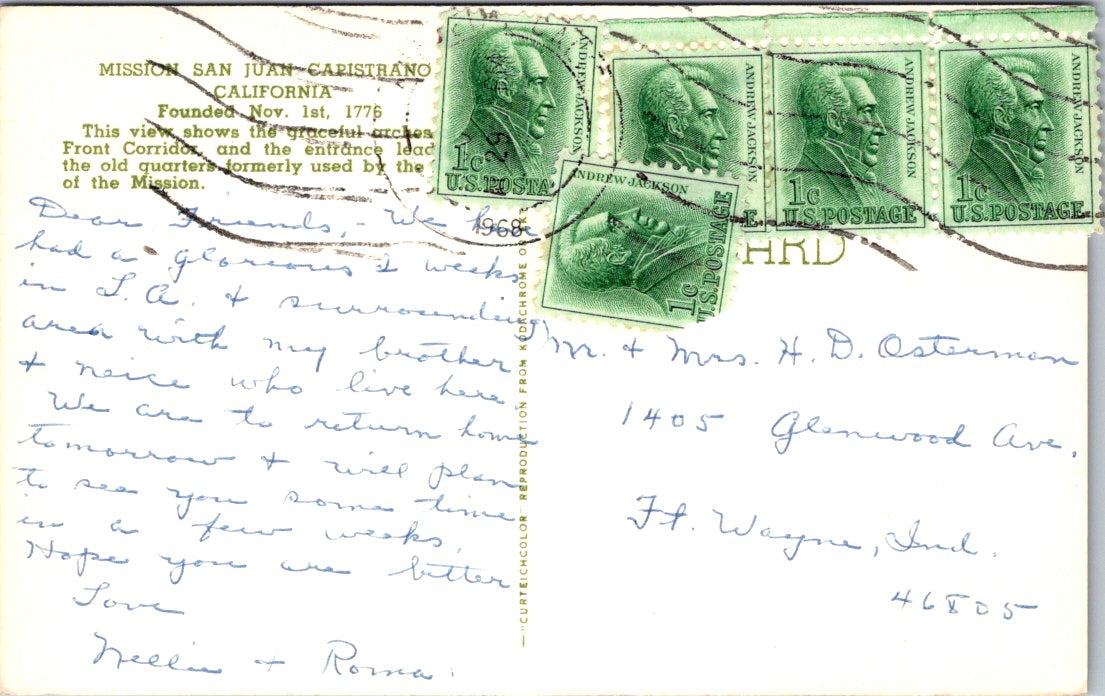 MISSION SAN JUAN CAPISTRANO
CALIFORNIA
Founded Nov. 1st, 1776
This view shows the graceful arches
Front Corridor, and the entrance
the old quarters formerly used by the
of the Mission.
Dear Friends, - We have
had a glorious 2 weeks
in L.A. & surrounding
area with my brother
& neice who live here.
We are to return home
tomorrow & will plan
to see you some time
in a few weeks.
Hope you are better
Love
Nellie & Roma.
"CURTEICHCOLOR" REPRODUCTION FROM KODACHROME OR
ANDREW JACKSON
1c
U.S. POSTA
29
1968
ANDREW JACKSON
E
ANDREW JACKSON
1c
U.S. POSTAGE
ANDREW JACKSON
1c
U.S. POSTAGE
ANDREW JACKSON
1c
U.S. POSTAGE
ARD
Mr. & Mrs. H. D. Osterman
1405 Glenwood Ave.
Ft. Wayne, Ind.
46805